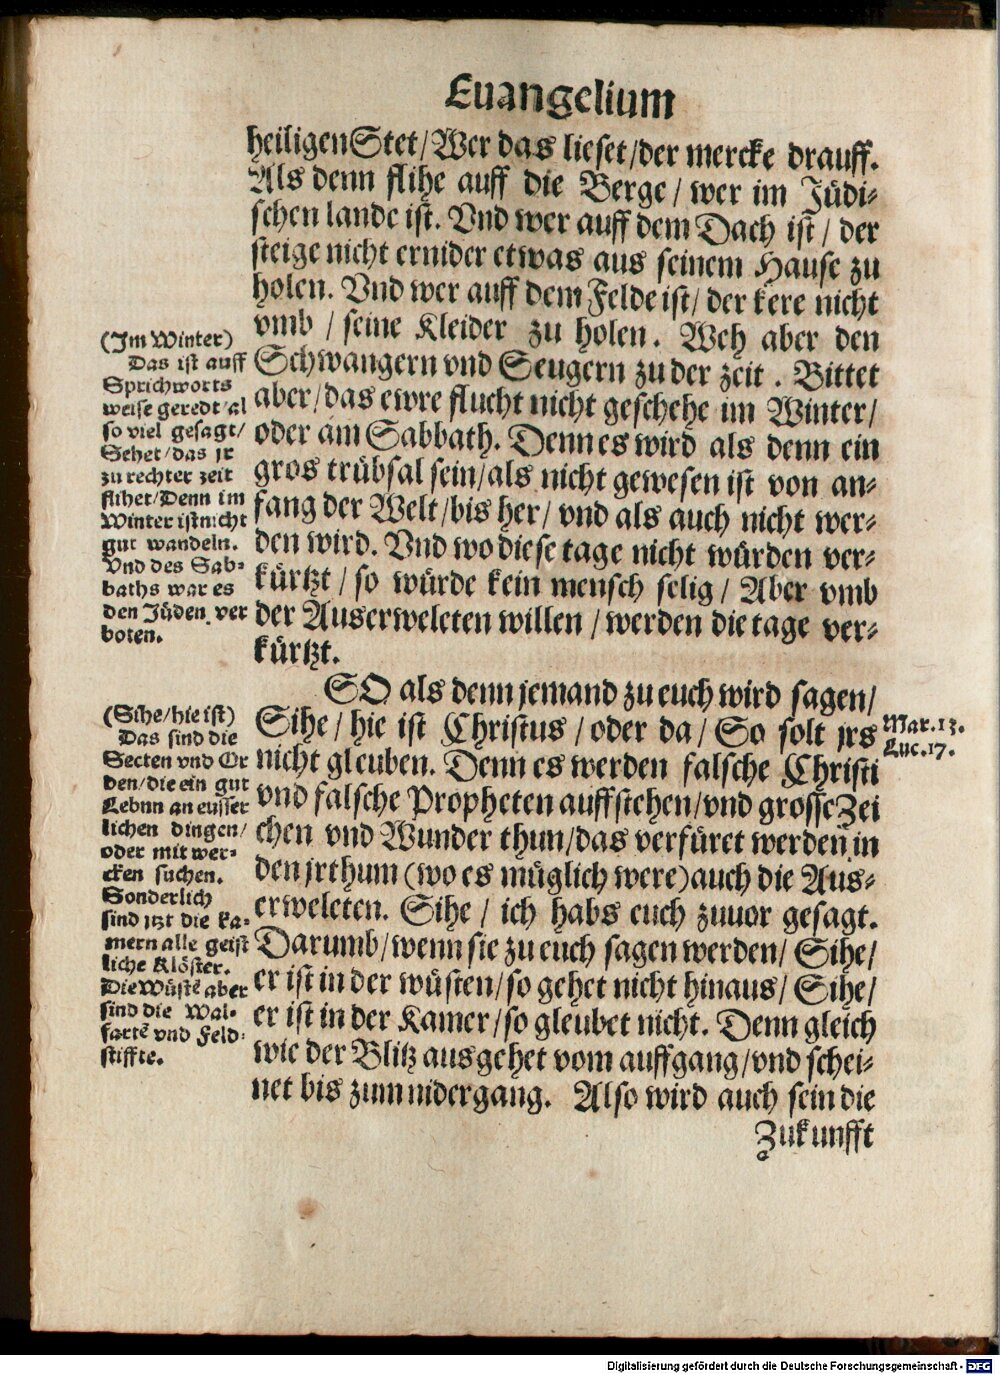 Euangelium
heiligen Stet/ Wer das lieset/ der mercke drauff.
Als denn flihe auff die Berge / wer im Jüdi-
schen lande ist. Vnd wer auff dem Dach ist / der
steige nicht ernider etwas aus seinem Hause zu
holen. Vnd wer auff dem Felde ist/ der kere nicht
vmb / seine Kleider zu holen. Weh aber den
Schwangern vnd Seugern zu der zeit. Bittet
aber/ das ewre flucht nicht geschehe im Winter/
oder am Sabbath. Denn es wird als denn ein
gros trübsal sein/ als nicht gewesen ist von an-
fang der Welt/ bis her/ vnd als auch nicht wer-
den wird. Vnd wo diese tage nicht würden ver-
kürtzt / so würde kein mensch selig / Aber vmb
der Auserweleten willen / werden die tage ver-
kürtzt.
(Im Winter)
Das ist auff
Sprichworts
weise geredt/ al
so viel gesagt/
Sehet/ das jr
zu rechter zeit
flihet/ Denn im
Winter ist nicht
gut wandeln.
Vnd des Sab-
baths war es
den Jüden ver
boten.
SO als denn jemand zu euch wird sagen/
Sihe/ hie ist Christus / oder da/ So solt jrs
nicht gleuben. Denn es werden falsche Christi
vnd falsche Propheten auffstehen/ vnd grosse Zei
chen vnd Wunder thun/ das verfüret werden in
den jrthum (wo es müglich were) auch die Aus-
erweleten. Sihe / ich habs euch zuuor gesagt.
Darumb/ wenn sie zu euch sagen werden/ Sihe/
er ist in der wüsten/ so gehet nicht hinaus/ Sihe/
er ist in der Kamer/ so gleubet nicht. Denn gleich
wie der Blitz ausgehet vom auffgang/ vnd schei-
net bis zum nidergang. Also wird auch sein die
Zukunfft
(Sihe/ hie ist)
Das sind die
Secten vnd Or
den/ die ein gut
Lebnn an eusser
lichen dingen/
oder mit wer-
cken suchen.
Sonderlich
sind jtzt die Ka-
mern alle geist
liche Klöster.
Die Wüstē aber
sind die Wal-
fartē vnd Feld-
stiffte.
Mar. 13.
Luc. 17.
Digitalisierung gefördert durch die Deutsche Forschungsgemeinschaft - DFG